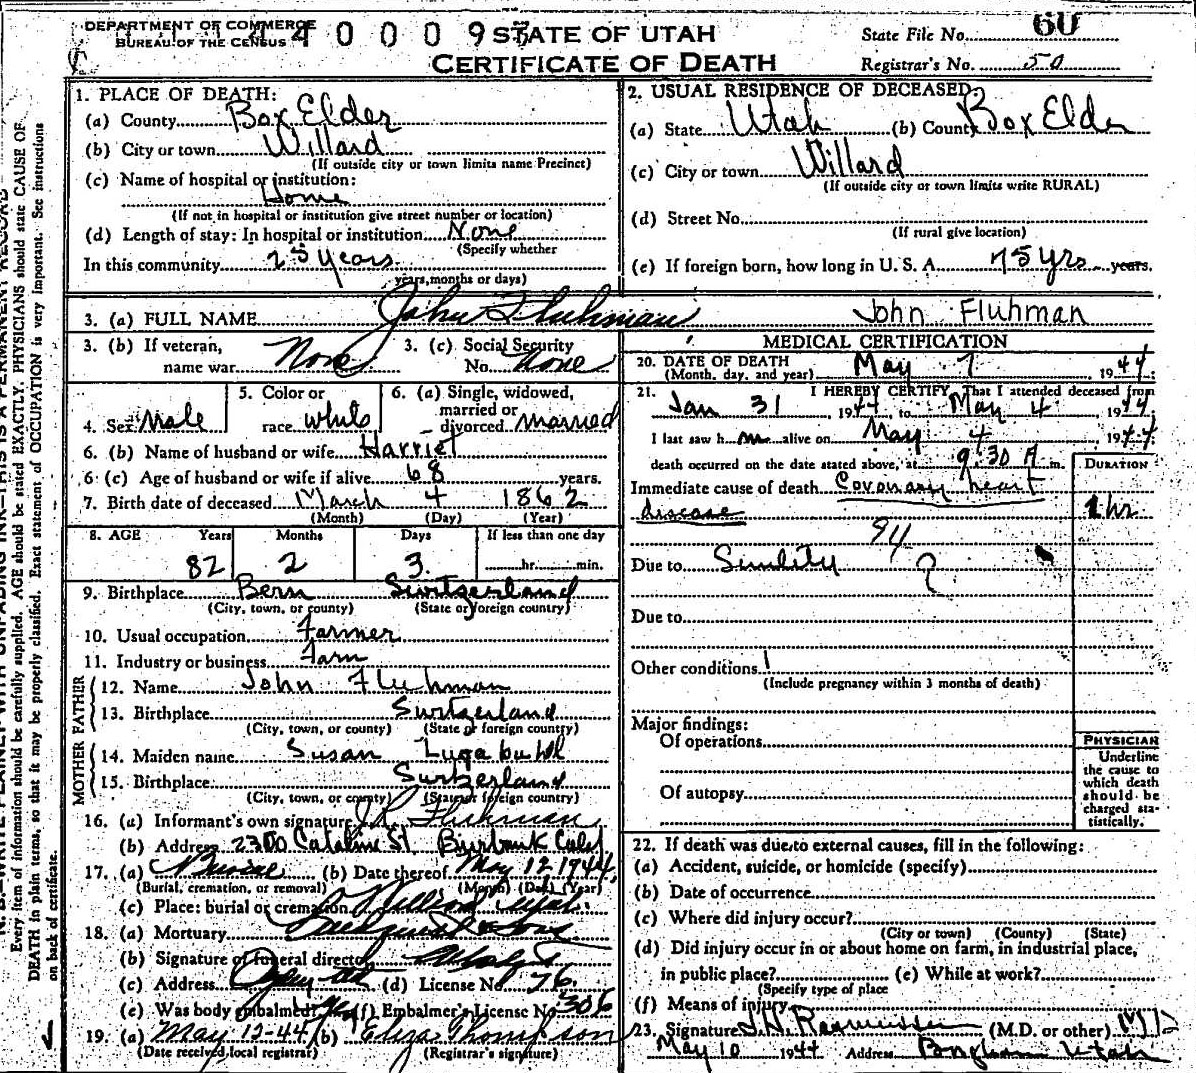 DEPARTMENT OF COMMERCE
BUREAU OF THE CENSUS
4 0 0 0 9
STATE OF UTAH
CERTIFICATE OF DEATH
State File No. 60
Registrar's No. 50
1. PLACE OF DEATH:
(a) County Box Elder
(b) City or town Willard
(If outside city or town limits name Precinct)
(c) Name of hospital or institution:
Home
(If not in hospital or institution give street number or location)
(d) Length of stay: In hospital or institution None
(Specify whether
In this community 25 years
years, months or days)
2. USUAL RESIDENCE OF DECEASED:
(a) State Utah (b) County Box Elder
(c) City or town Willard
(If outside city or town limits write RURAL)
(d) Street No.
(If rural give location)
(e) If foreign born, how long in U. S. A. 75 yrs years.
3. (a) FULL NAME John Fluhman John Fluhman
3. (b) If veteran, name war None
3. (c) Social Security No. None
4. Sex Male
5. Color or race white
6. (a) Single, widowed, married or divorced married
6. (b) Name of husband or wife Harriet
6 (c) Age of husband or wife if alive 68 years.
7. Birth date of deceased March 4 1862
(Month) (Day) (Year)
8. AGE Years Months Days If less than one day
82 2 3 hr. min.
9. Birthplace Bern Switzerland
(City, town, or county) (State or foreign country)
10. Usual occupation Farmer
11. Industry or business Farm
FATHER
12. Name John Fluhman
13. Birthplace Switzerland
(City, town, or county) (State or foreign country)
MOTHER
14. Maiden name Susan Lugabuhl
15. Birthplace Switzerland
(City, town, or county) (State or foreign country)
16. (a) Informant's own signature Fluhman
(b) Address 2300 Catalina St. Burbank Calif
17. (a) Burial (b) Date thereof May 12 1944
(Burial, cremation, or removal) (Month) (Day) (Year)
(c) Place: burial or cremation Willard Utah
18. (a) Mortuary & Sons
(b) Signature of funeral director
(c) Address Ogden (d) License No. 76
(e) Was body embalmed (f) Embalmer's License No. 306
19. (a) May 12-44 (b) Eliza Thompson
(Date received local registrar) (Registrar's signature)
MEDICAL CERTIFICATION
20. DATE OF DEATH May 7 1944
(Month, day, and year)
21. I HEREBY CERTIFY, That I attended deceased from
Jan 31, 1944, to May 4 1944.
I last saw him alive on May 4 1944
death occurred on the date stated above, at 9:30 A m.
DURATION
Immediate cause of death Coronary heart
disease 1 hr
94
Due to Senility ?
Due to
Other conditions
(Include pregnancy within 3 months of death)
Major findings:
Of operations
Of autopsy
PHYSICIAN
Underline
the cause to
which death
should be
charged sta-
tistically.
22. If death was due to external causes, fill in the following:
(a) Accident, suicide, or homicide (specify)
(b) Date of occurrence
(c) Where did injury occur?
(City or town) (County) (State)
(d) Did injury occur in or about home on farm, in industrial place,
in public place? (e) While at work?
(Specify type of place
(f) Means of injury
23. Signature Rasmussen (M.D. or other) MD
May 10 1944 Address Brigham Utah
Every item of information should be carefully supplied. AGE should be stated EXACTLY. PHYSICIANS should state CAUSE OF
DEATH in plain terms, so that it may be properly classified. Exact statement of OCCUPATION is very important. See instructions
on back of certificate.